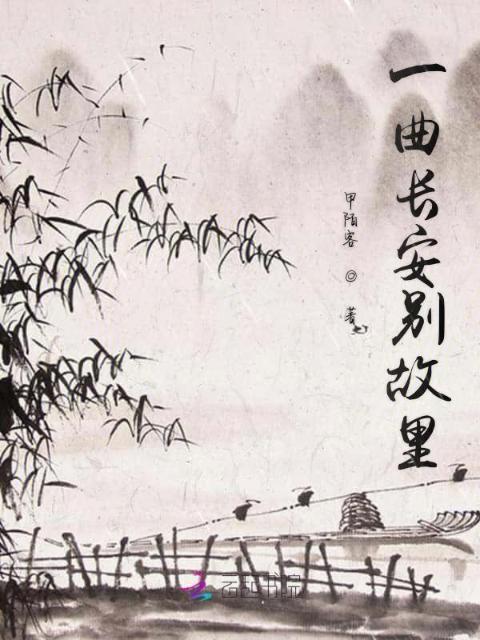 一曲长安别故里
甲陌客 ◎ 著
书院